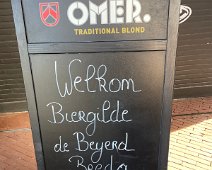 OMER.
TRADITIONAL BLOND
Welkom
Biergilde
de Beyerd
Breda